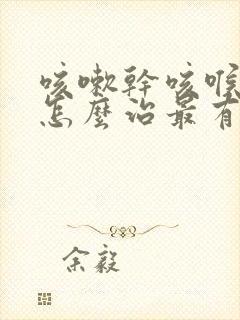 咳嗽幹咳喉
怎麼治最有
余毅